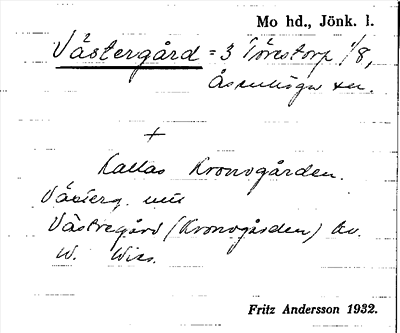 Mo hd., Jönk. l.
Västergård = 3 Törestorp 1/8,
Åsenhöga sn.
+
Kallas Kronogården.
Västerg. uu
Västregård (Kronogården) Av.
W. Wiss.
Fritz Andersson 1932.